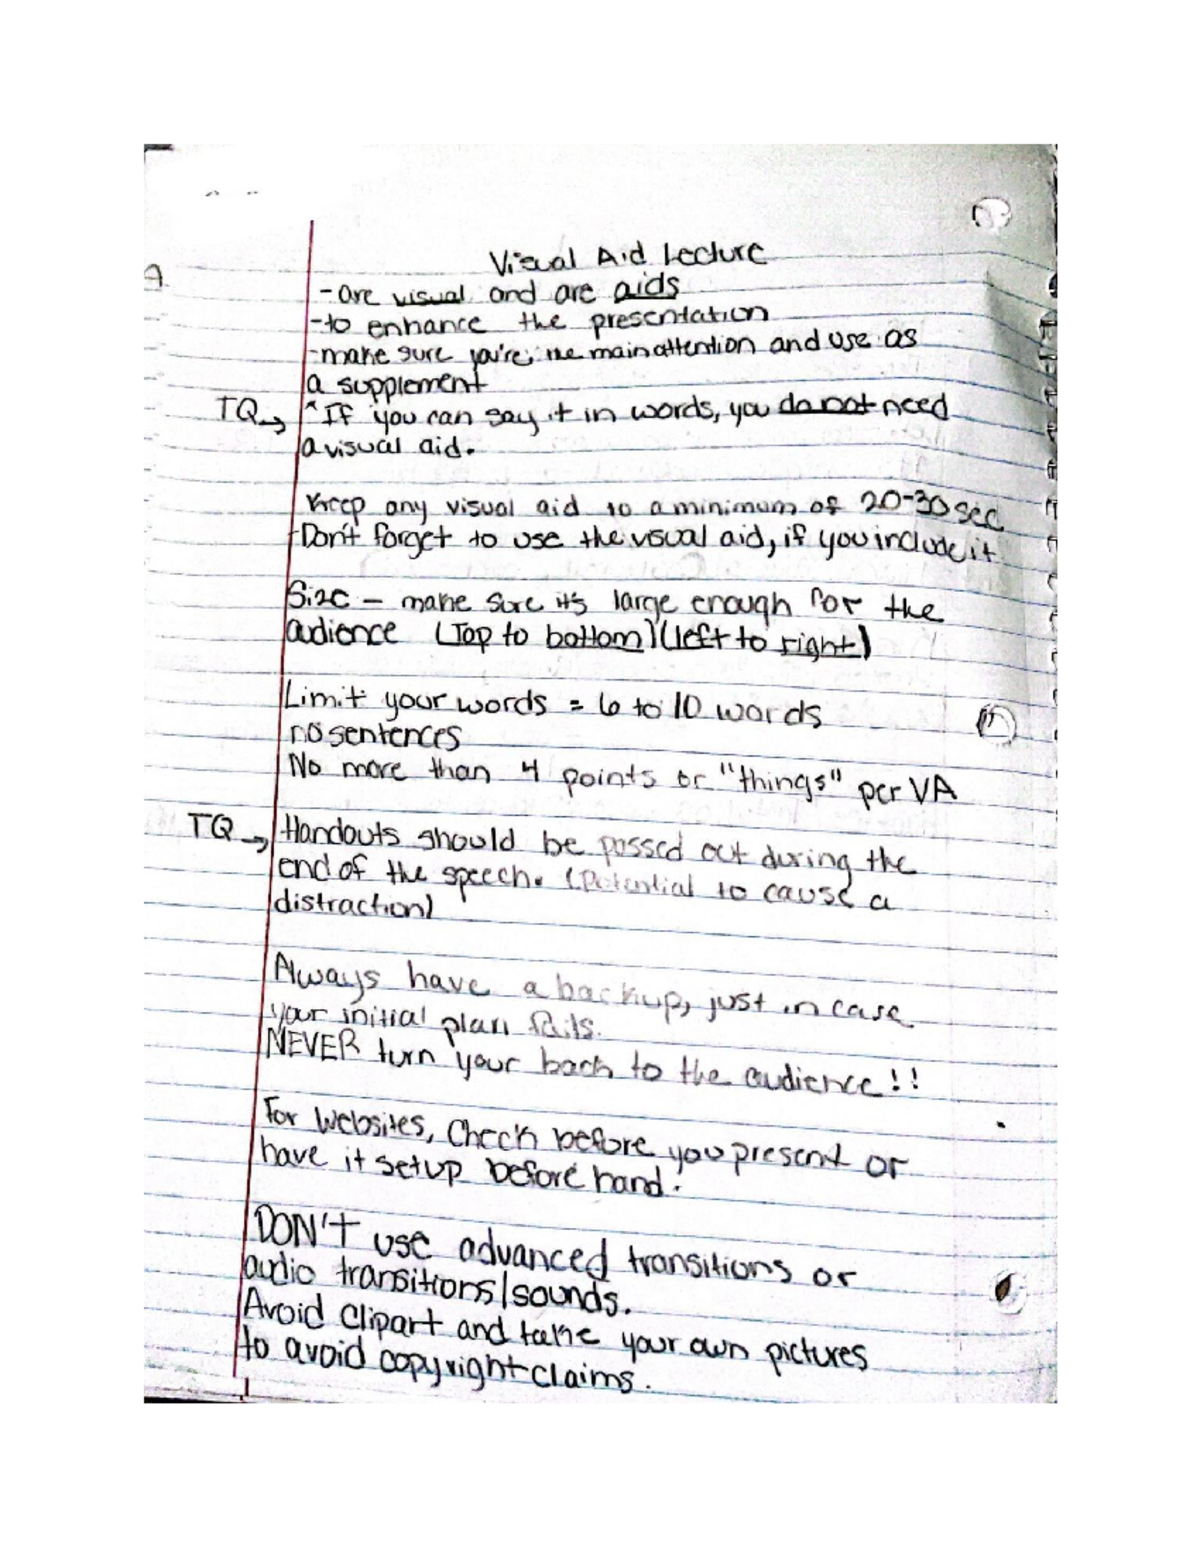 Visual Aid Lecture
- are visual and are aids
- to enhance the presentation
- make sure you're the main attention and use as
a supplement
TQ → * If you can say it in words, you do not need
a visual aid.
Keep any visual aid to a minimum of 20-30 sec
- Don't forget to use the visual aid, if you include it
Size - make sure its large enough for the
audience (Top to bottom) (left to right)
Limit your words = 6 to 10 words
no sentences
No more than 4 points or "things" per VA
TQ → Handouts should be passed out during the
end of the speech. (Potential to cause a
distraction)
Always have a backup, just in case
your initial plan fails.
NEVER turn your back to the audience!!
For Websites, Check before you present or
have it setup before hand.
DON'T use advanced transitions or
audio transitions/sounds.
Avoid Clipart and take your own pictures
to avoid copyright claims.